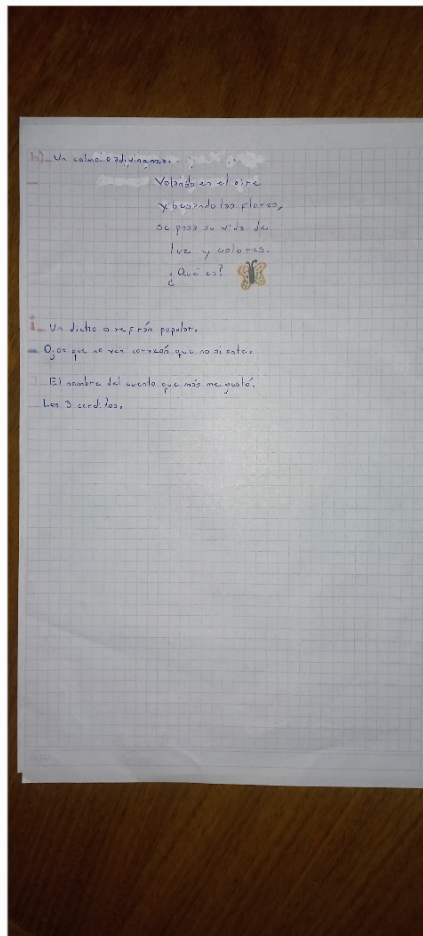 h)_ Un colmo o adivinanza.
_ Volando en el aire
y besando las flores,
se pasa su vida de
luz y colores.
¿Qué es?
i_ Un dicho o refrán popular.
_ Ojos que no ven corazón que no siente.
J_ El nombre del cuento que más me gustó.
_ Los 3 cerditos.